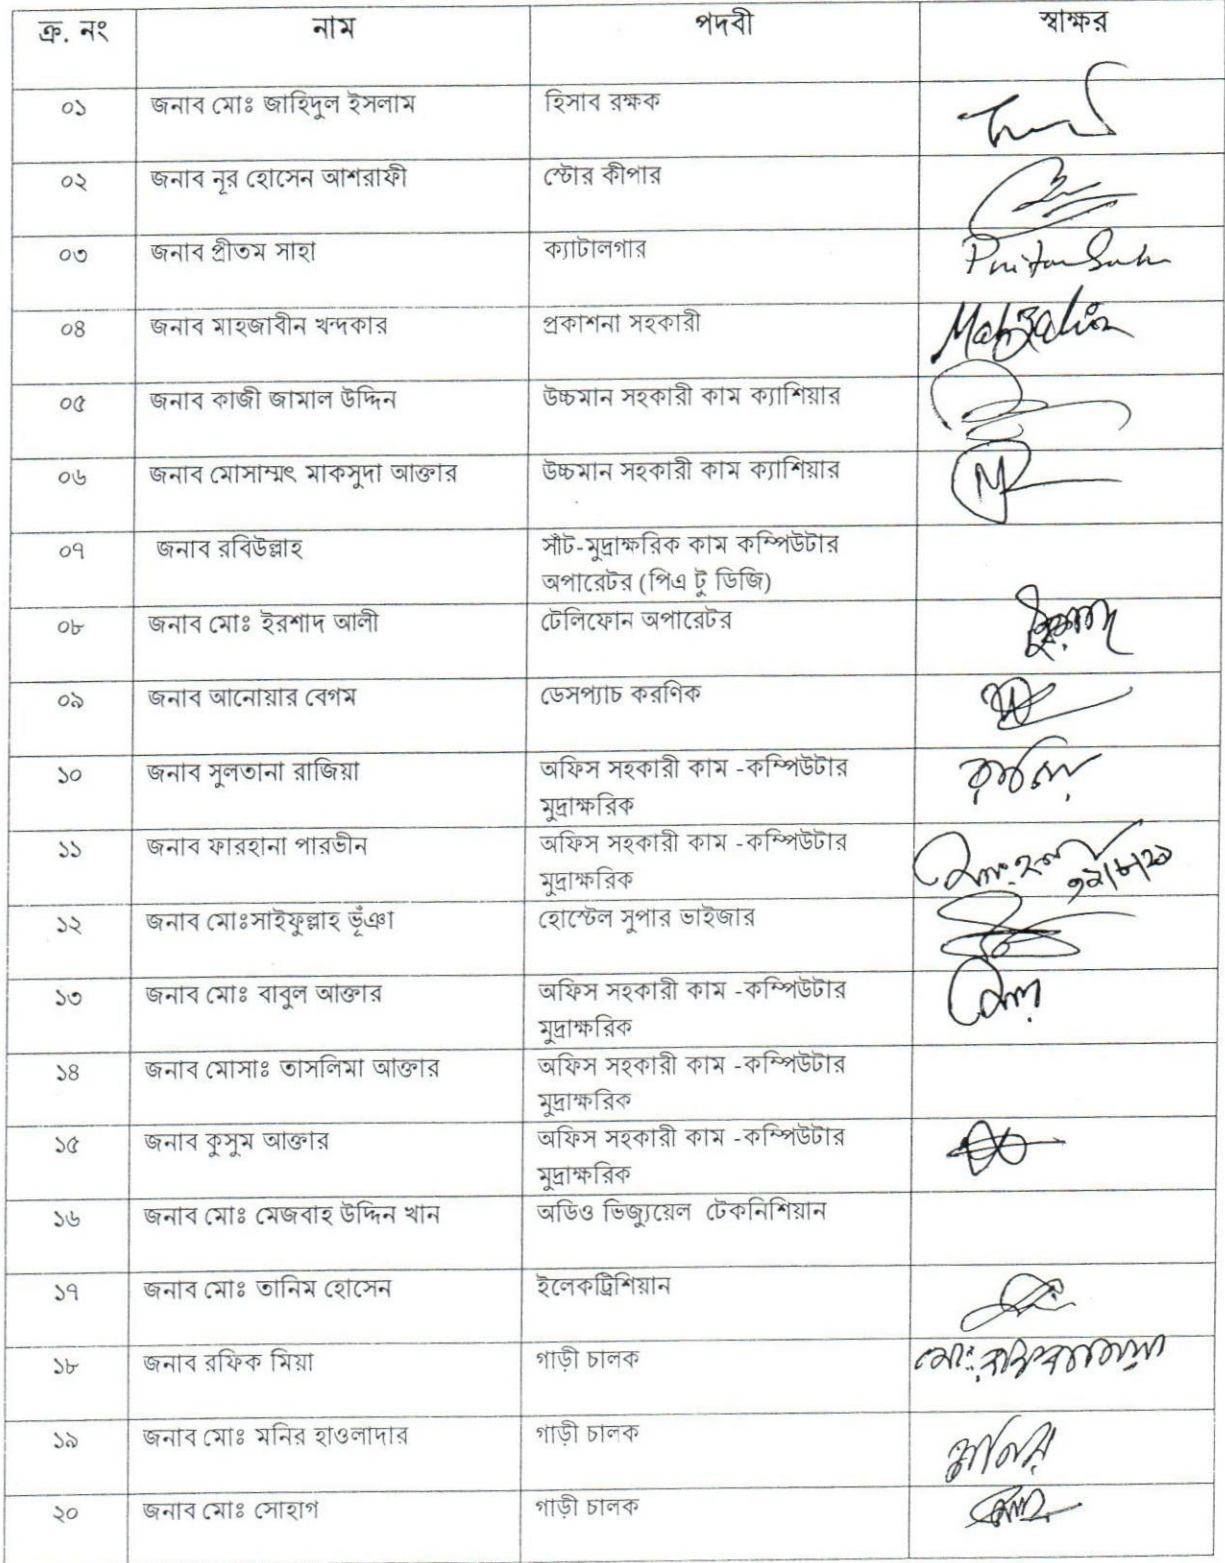 ক্র. নং নাম পদবী স্বাক্ষর
০১ জনাব মোঃ জাহিদুল ইসলাম হিসাব রক্ষক
০২ জনাব নূর হোসেন আশরাফী স্টোর কীপার
০৩ জনাব প্রীতম সাহা ক্যাটালগার
০৪ জনাব মাহজাবীন খন্দকার প্রকাশনা সহকারী
০৫ জনাব কাজী জামাল উদ্দিন উচ্চমান সহকারী কাম ক্যাশিয়ার
০৬ জনাব মোসাম্মৎ মাকসুদা আক্তার উচ্চমান সহকারী কাম ক্যাশিয়ার
০৭ জনাব রবিউল্লাহ সাঁট-মুদ্রাক্ষরিক কাম কম্পিউটার
অপারেটর (পিএ টু ডিজি)
০৮ জনাব মোঃ ইরশাদ আলী টেলিফোন অপারেটর
০৯ জনাব আনোয়ার বেগম ডেসপ্যাচ করণিক
১০ জনাব সুলতানা রাজিয়া অফিস সহকারী কাম -কম্পিউটার
মুদ্রাক্ষরিক
১১ জনাব ফারহানা পারভীন অফিস সহকারী কাম -কম্পিউটার
মুদ্রাক্ষরিক
১২ জনাব মোঃসাইফুল্লাহ ভূঁঞা হোস্টেল সুপার ভাইজার
১৩ জনাব মোঃ বাবুল আক্তার অফিস সহকারী কাম -কম্পিউটার
মুদ্রাক্ষরিক
১৪ জনাব মোসাঃ তাসলিমা আক্তার অফিস সহকারী কাম -কম্পিউটার
মুদ্রাক্ষরিক
১৫ জনাব কুসুম আক্তার অফিস সহকারী কাম -কম্পিউটার
মুদ্রাক্ষরিক
১৬ জনাব মোঃ মেজবাহ উদ্দিন খান অডিও ভিজ্যুয়েল টেকনিশিয়ান
১৭ জনাব মোঃ তানিম হোসেন ইলেকট্রিশিয়ান
১৮ জনাব রফিক মিয়া গাড়ী চালক
১৯ জনাব মোঃ মনির হাওলাদার গাড়ী চালক
২০ জনাব মোঃ সোহাগ গাড়ী চালক